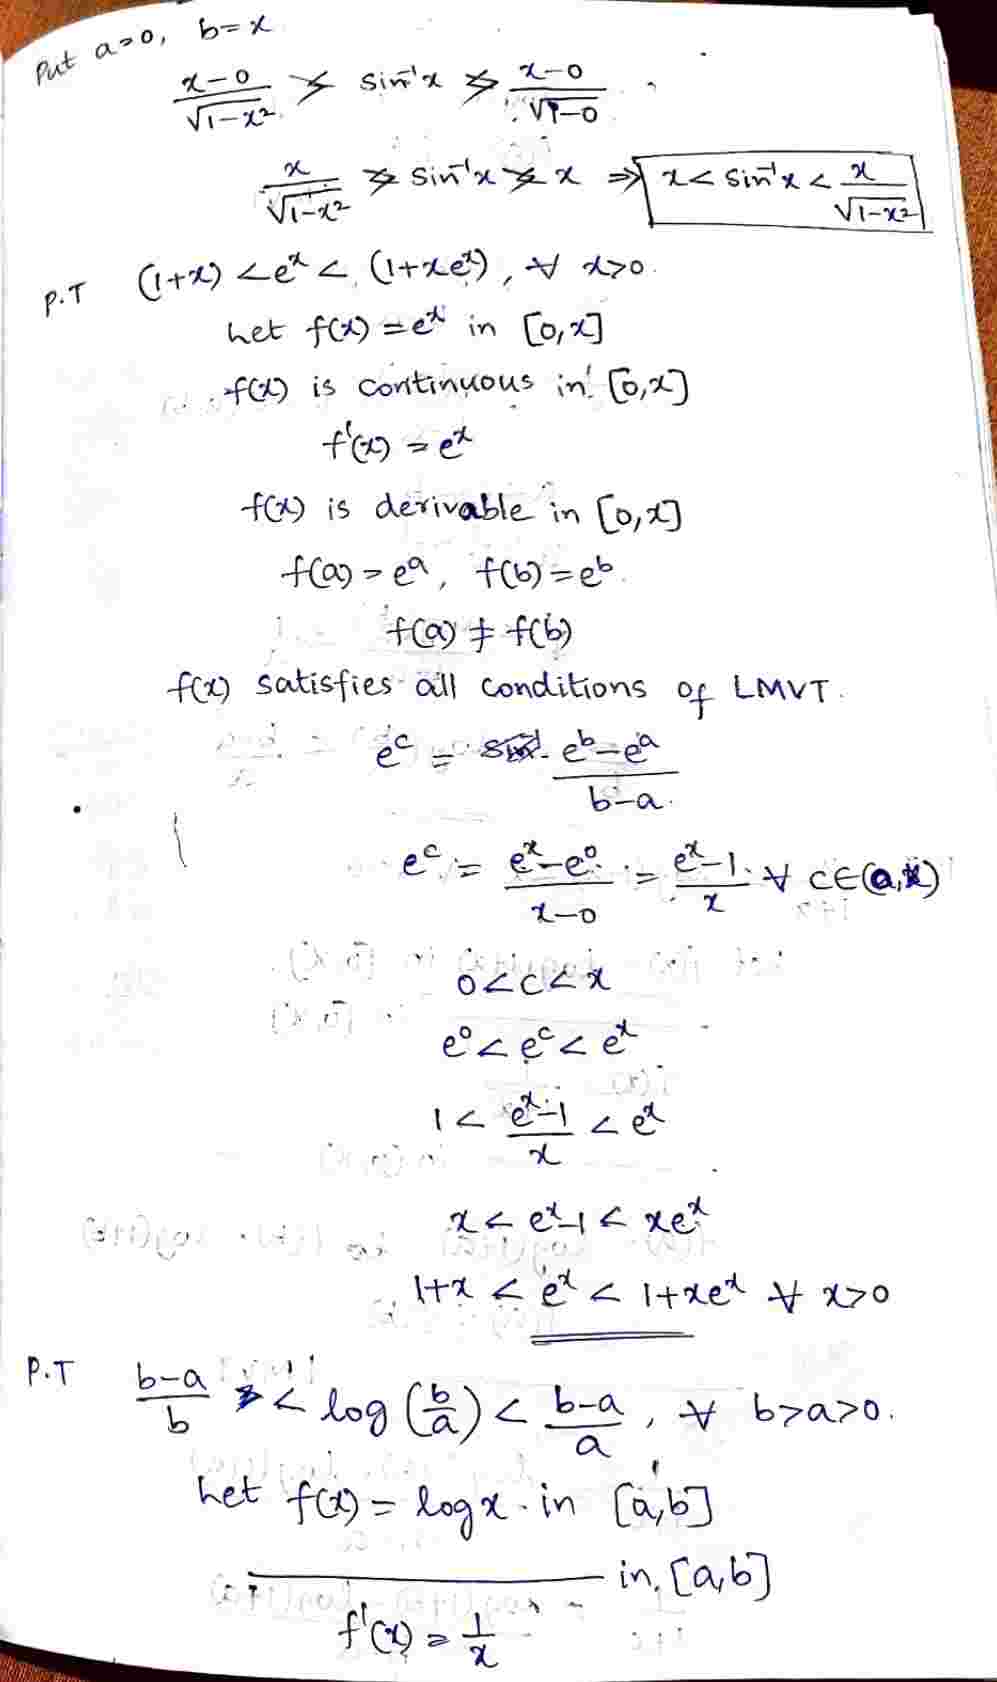 Put a=0, b=x
x-0/√1-x² > sin⁻¹x > x-0/√1-0
x/√1-x² > sin⁻¹x > x ⇒ x < sin⁻¹x < x/√1-x²
P.T (1+x) < eˣ < (1+xeˣ), ∀ x>0.
Let f(x) = eˣ in [0,x]
f(x) is continuous in [0,x]
f'(x) = eˣ
f(x) is derivable in [0,x]
f(a) = eᵃ, f(b) = eᵇ.
f(a) ≠ f(b)
f(x) satisfies all conditions of LMVT.
eᶜ = eᵇ-eᵃ/b-a.
eᶜ = eˣ-e⁰/x-0 = eˣ-1/x ∀ c∈(0,x)
0<c<x
e⁰ < eᶜ < eˣ
1 < eˣ-1/x < eˣ
x < eˣ-1 < xeˣ
1+x < eˣ < 1+xeˣ ∀ x>0
P.T b-a/b < log(b/a) < b-a/a, ∀ b>a>0.
Let f(x) = log x in [a,b]
in [a,b]
f'(x) = 1/x